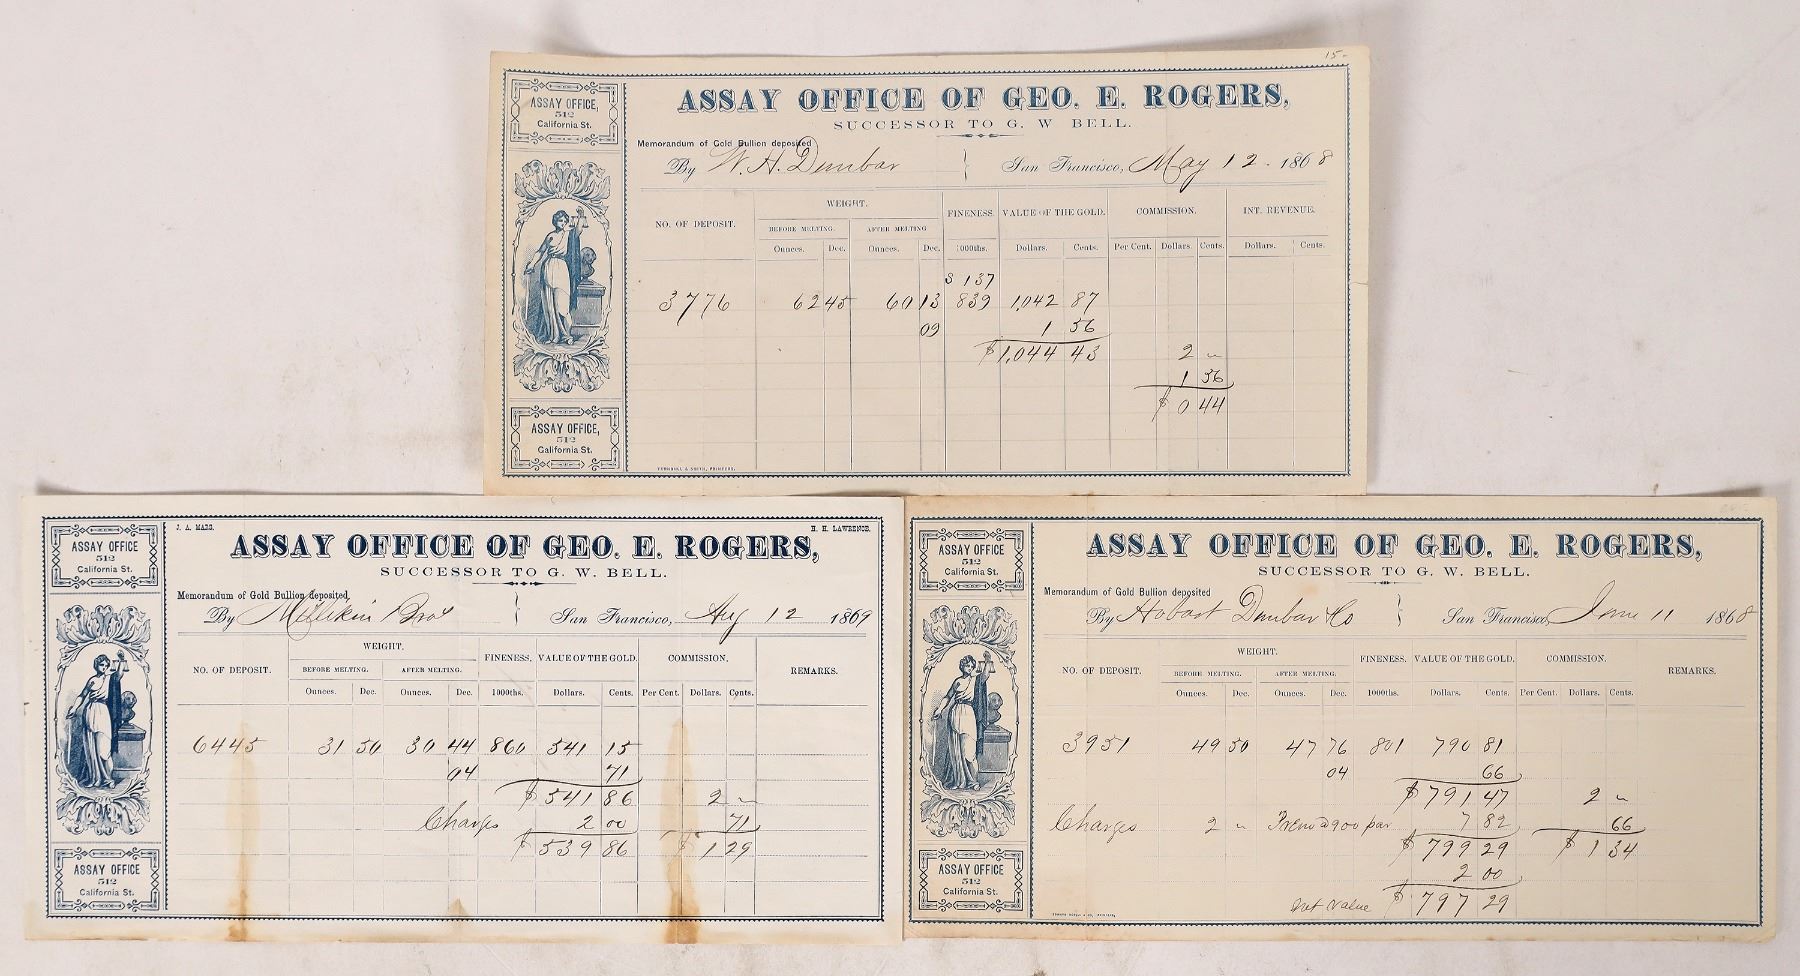 15-
ASSAY OFFICE,
512
California St.
ASSAY OFFICE OF GEO. E. ROGERS,
SUCCESSOR TO G. W BELL.
Memorandum of Gold Bullion deposited
By W. H. Dunbar } San Francisco, May 12 - 1868
NO. OF DEPOSIT. WEIGHT. FINENESS. VALUE OF THE GOLD. COMMISSION. INT. REVENUE.
BEFORE MELTING. AFTER MELTING
Ounces. Dec. Ounces. Dec. 1000ths. Dollars. Cents. Per Cent. Dollars. Cents. Dollars. Cents.
S 137
3776 62 45 60 13 839 1,042 87
09 1 56
$1,044 43 2 "
1 56
$ 0 44
ASSAY OFFICE,
512
California St.
J. A. MARS. H. H. LAWRENCE.
ASSAY OFFICE
512
California St.
ASSAY OFFICE OF GEO. E. ROGERS,
SUCCESSOR TO G. W. BELL.
Memorandum of Gold Bullion deposited
By Millikin Bros } San Francisco, Aug 12 1869
NO. OF DEPOSIT. WEIGHT. FINENESS. VALUE OF THE GOLD. COMMISSION. REMARKS.
BEFORE MELTING. AFTER MELTING.
Ounces. Dec. Ounces. Dec. 1000ths. Dollars. Cents. Per Cent. Dollars. Cents.
6445 31 50 30 44 860 541 15
04 71
$541 86 2 "
Charges 2 00 71
$539 86 $1 29
ASSAY OFFICE
512
California St.
ASSAY OFFICE
512
California St.
ASSAY OFFICE OF GEO. E. ROGERS,
SUCCESSOR TO G. W. BELL.
Memorandum of Gold Bullion deposited
By Hobart Dunbar & Co } San Francisco, June 11 1868
NO. OF DEPOSIT. WEIGHT. FINENESS. VALUE OF THE GOLD. COMMISSION. REMARKS.
BEFORE MELTING. AFTER MELTING.
Ounces. Dec. Ounces. Dec. 1000ths. Dollars. Cents. Per Cent. Dollars. Cents.
3951 49 50 47 76 801 790 81
04 66
$791 47 2 "
Charges 2 " Prem a 900 par 7 82 66
$799 29 $ 1 34
2 00
Net Value $797 29
ASSAY OFFICE
512
California St.